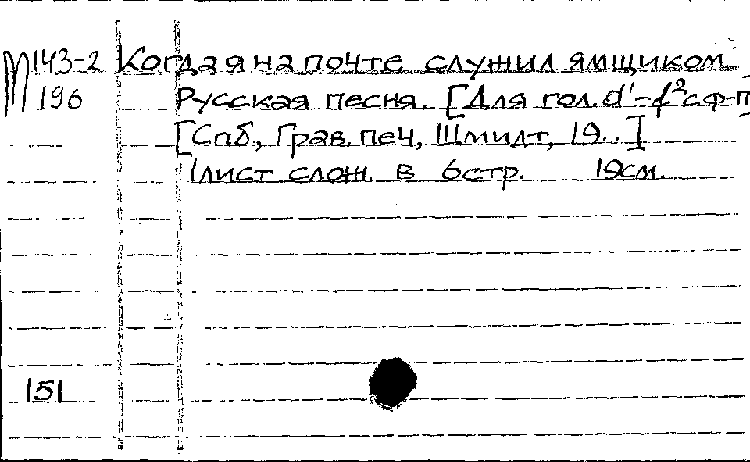 М143-2 Когда я на почте служил ямщиком.
196 Русская песня. [Для гол. d'-f² с ф-п
[Спб., Грав. печ, Шмидт, 19..]
1 лист слож. в 6 стр. 19 см.
151